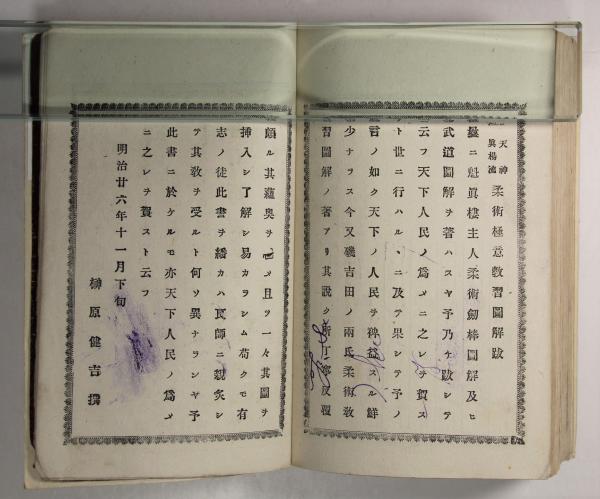 天神
真楊流 柔術極意敎習圖解跋
ニ魁眞樓主人柔術劍棒圖解及ヒ
武道圖解ヲ著ハスヤ予乃ケ跋シテ
云フ天下人民ノ爲メニ之レヲ賀ス
ト世ニ行ハルヽニ及テ果シテ予ノ
言ノ如ク天下ノ人民ヲ裨益スル鮮
少ナラス今又磯吉田ノ兩氏柔術敎
習圖解ノ著アリ其説ク所丁寧反覆
頗ル其蘊奥ヲ メ且ツ一々其圖ヲ
挿入シ了解シ易カラシム苟クモ有
志ノ徒此書ヲ繙カハ良師ニ親炙シ
テ其敎ヲ受ルト何ソ異ナランヤ予
此書ニ於ケルモ亦天下人民ノ爲メ
ニ之レヲ賀スト云フ
明治廿六年十一月下旬
榊原健吉撰